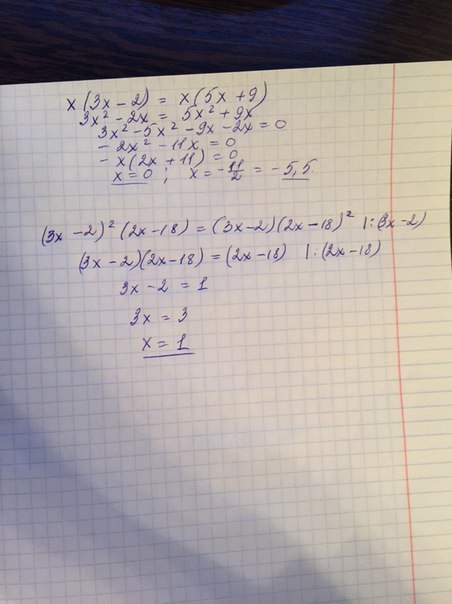 x(3x-2) = x(5x+9)
3x² - 2x = 5x² + 9x
3x² - 5x² - 9x - 2x = 0
- 2x² - 11x = 0
- x(2x + 11) = 0
x = 0 ; x = - 11/2 = - 5,5
(3x - 2)² (2x - 18) = (3x-2)(2x-18)² |:(3x-2)
(3x - 2)(2x - 18) = (2x - 18) |·(2x-18)
3x - 2 = 1
3x = 3
x = 1